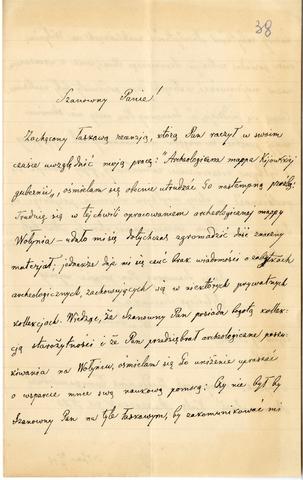 38
Szanowny Panie!
Zachęcony łaskawą recenzją, którą Pan raczył w swoim
czasie uwzględnić moją pracę: "Archeologiczna mappa Kijowskiej
gubernii", ośmielam się obecnie utrudzać Go następną prośbą:
Trudzę się w tej chwili opracowaniem archeologicznej mappy
Wołynia – udało mi się dotychczas zgromadzić dość znaczny
materjał; jednakże daje mi się czuć brak wiadomości o zabytkach
archeologicznych, zachowujących się w niektórych prywatnych
kollekcjach. Wiedząc, że Szanowny Pan posiada bogatą kollek-
cją starożytności i że Pan przedsiębrał archeologiczne poszu-
kiwania na Wołyniu, ośmielam się Go uniżenie upraszać
o wsparcie mnie swą naukową pomocą: Czy nie był by
Szanowny Pan na tyle łaskawym, by zakomunikować mi